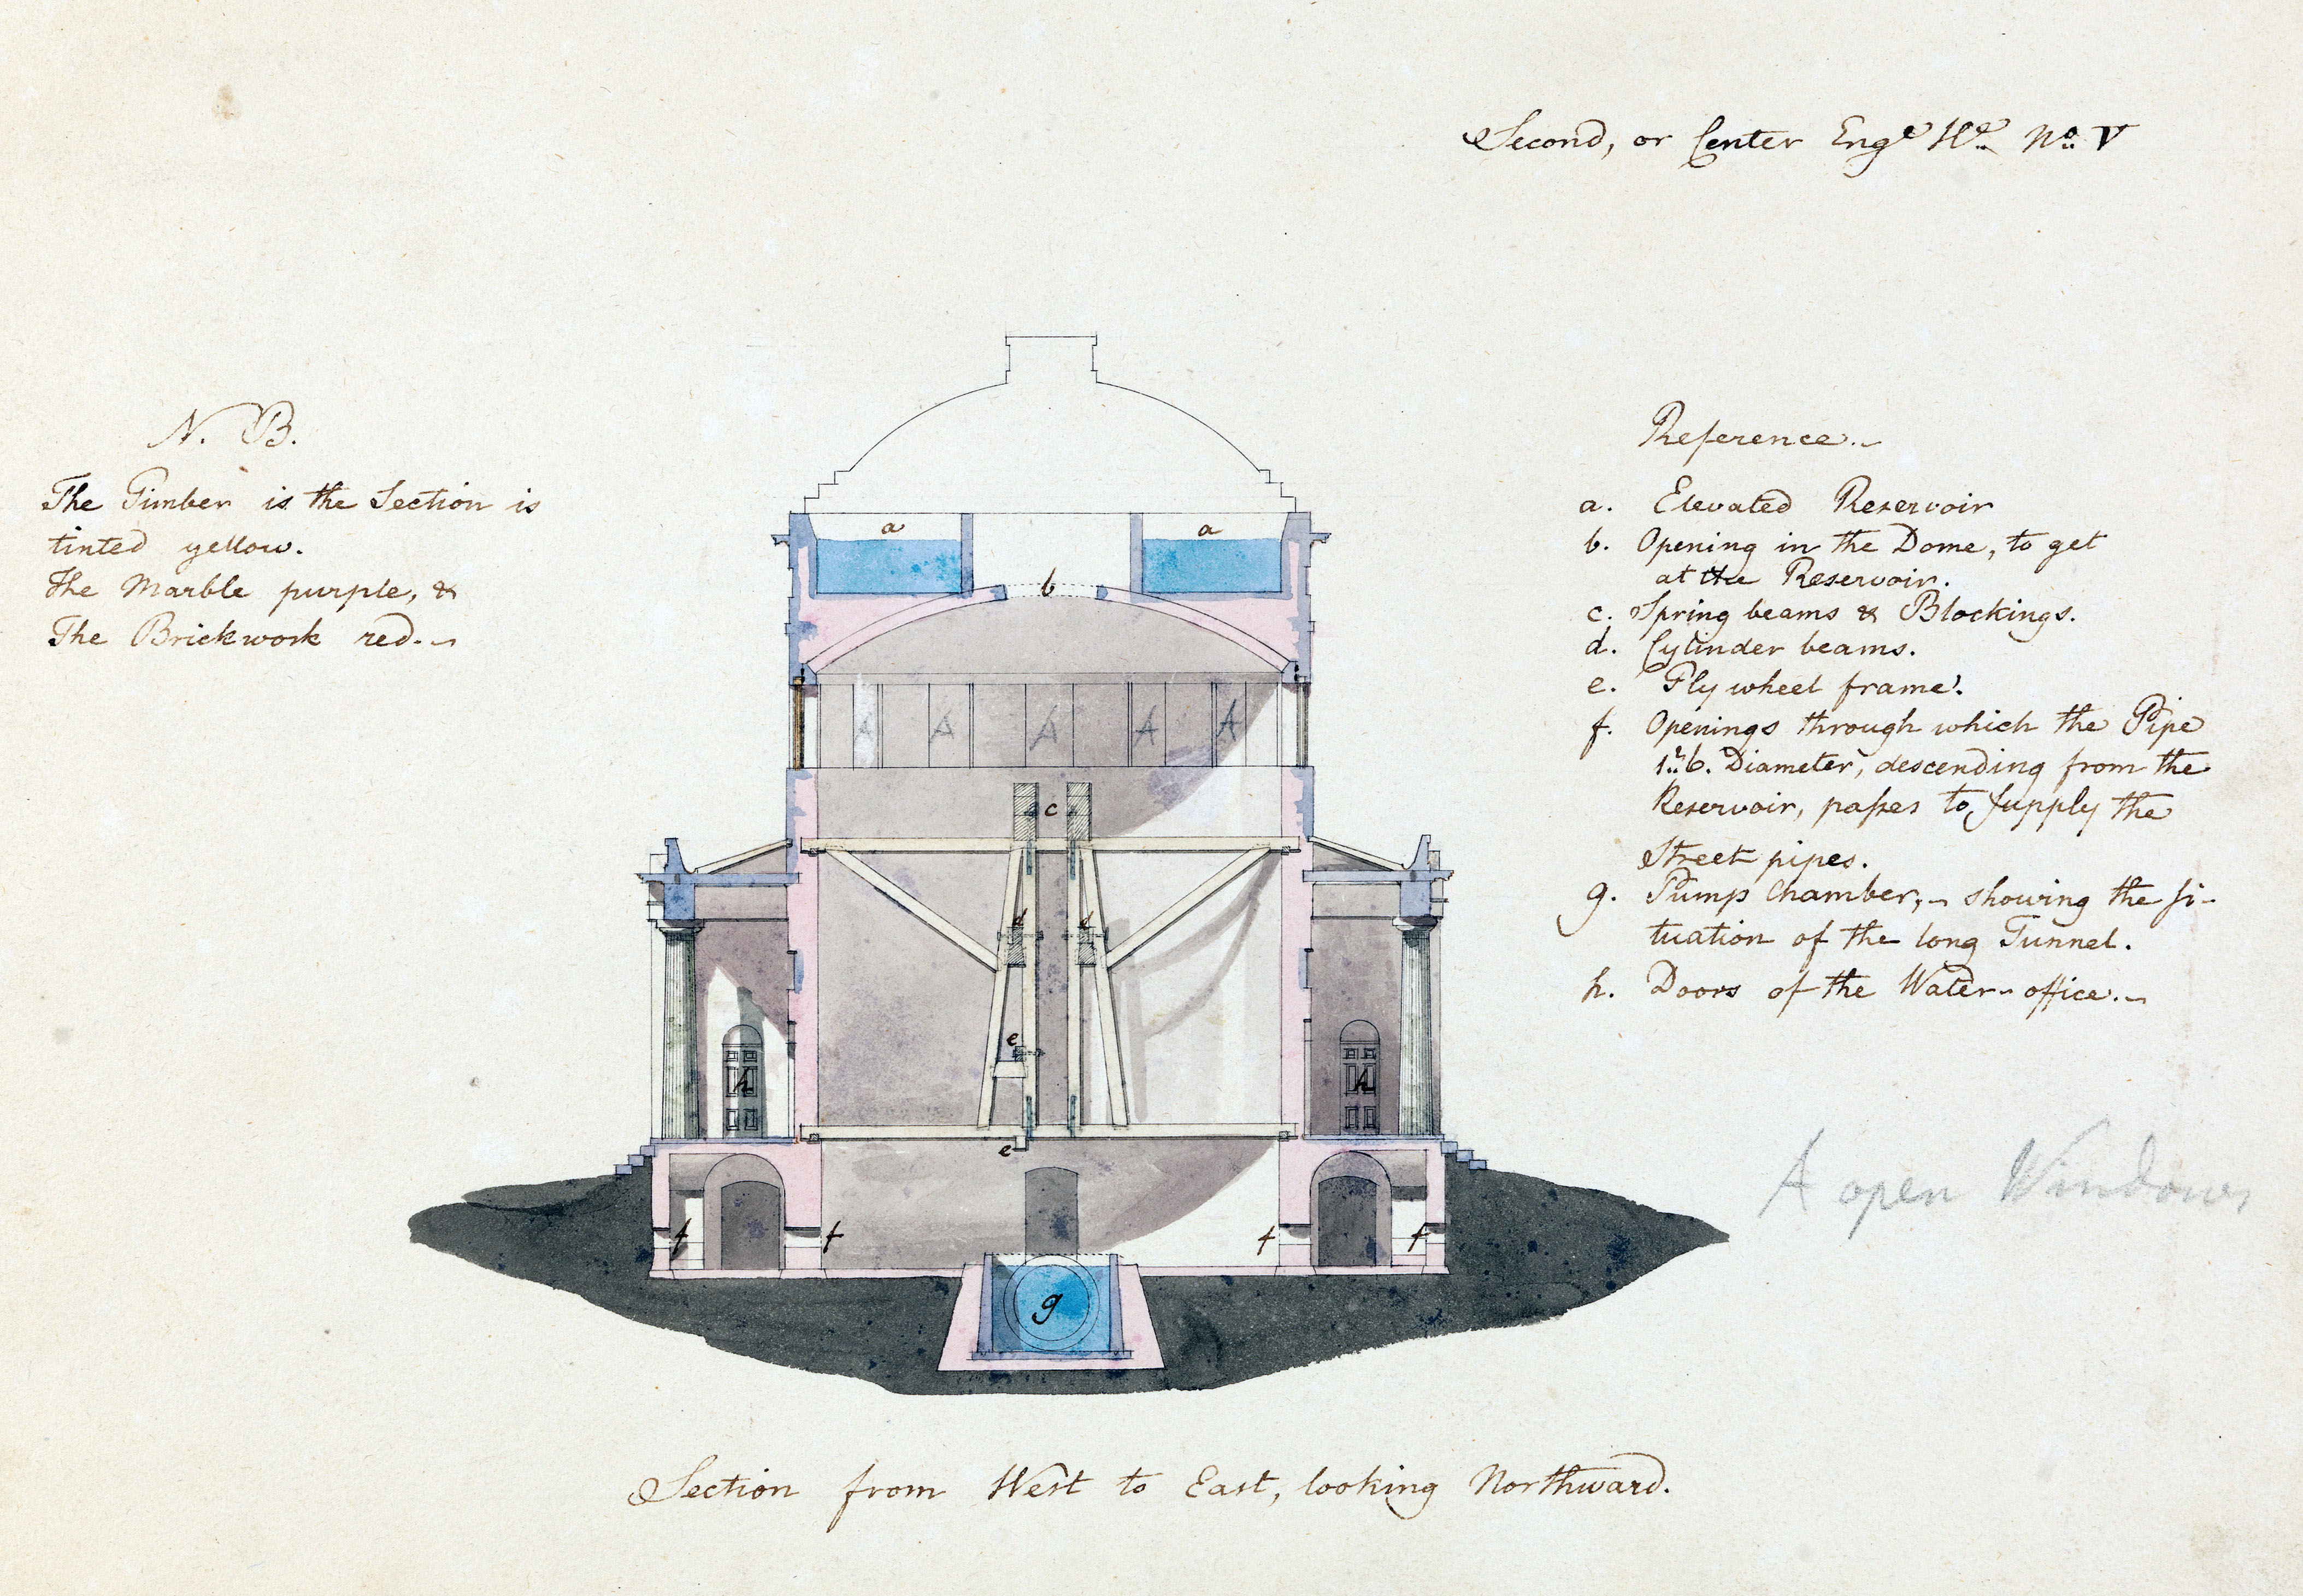 Second, or Center Engᵉ Hᵉ Nᵒ V
N. B.
The Timber is the Section is
tinted yellow.
The Marble purple, &
The Brickwork red.
Reference.
a. Elevated Reservoir
b. Opening in the Dome, to get
at the Reservoir.
c. Spring beams & Blockings.
d. Cylinder beams.
e. Fly wheel frame.
f. Openings through which the Pipe
1..6. Diameter, descending from the
Reservoir, paſses to ſupply the
Street pipes.
g. Pump Chamber, - showing the ſi-
tuation of the long Tunnel.
h. Doors of the Water-office.
A open Windows
a a
b
A A A A A
c
d d
e
h h
e
f f f f
g
Section from West to East, looking Northward.